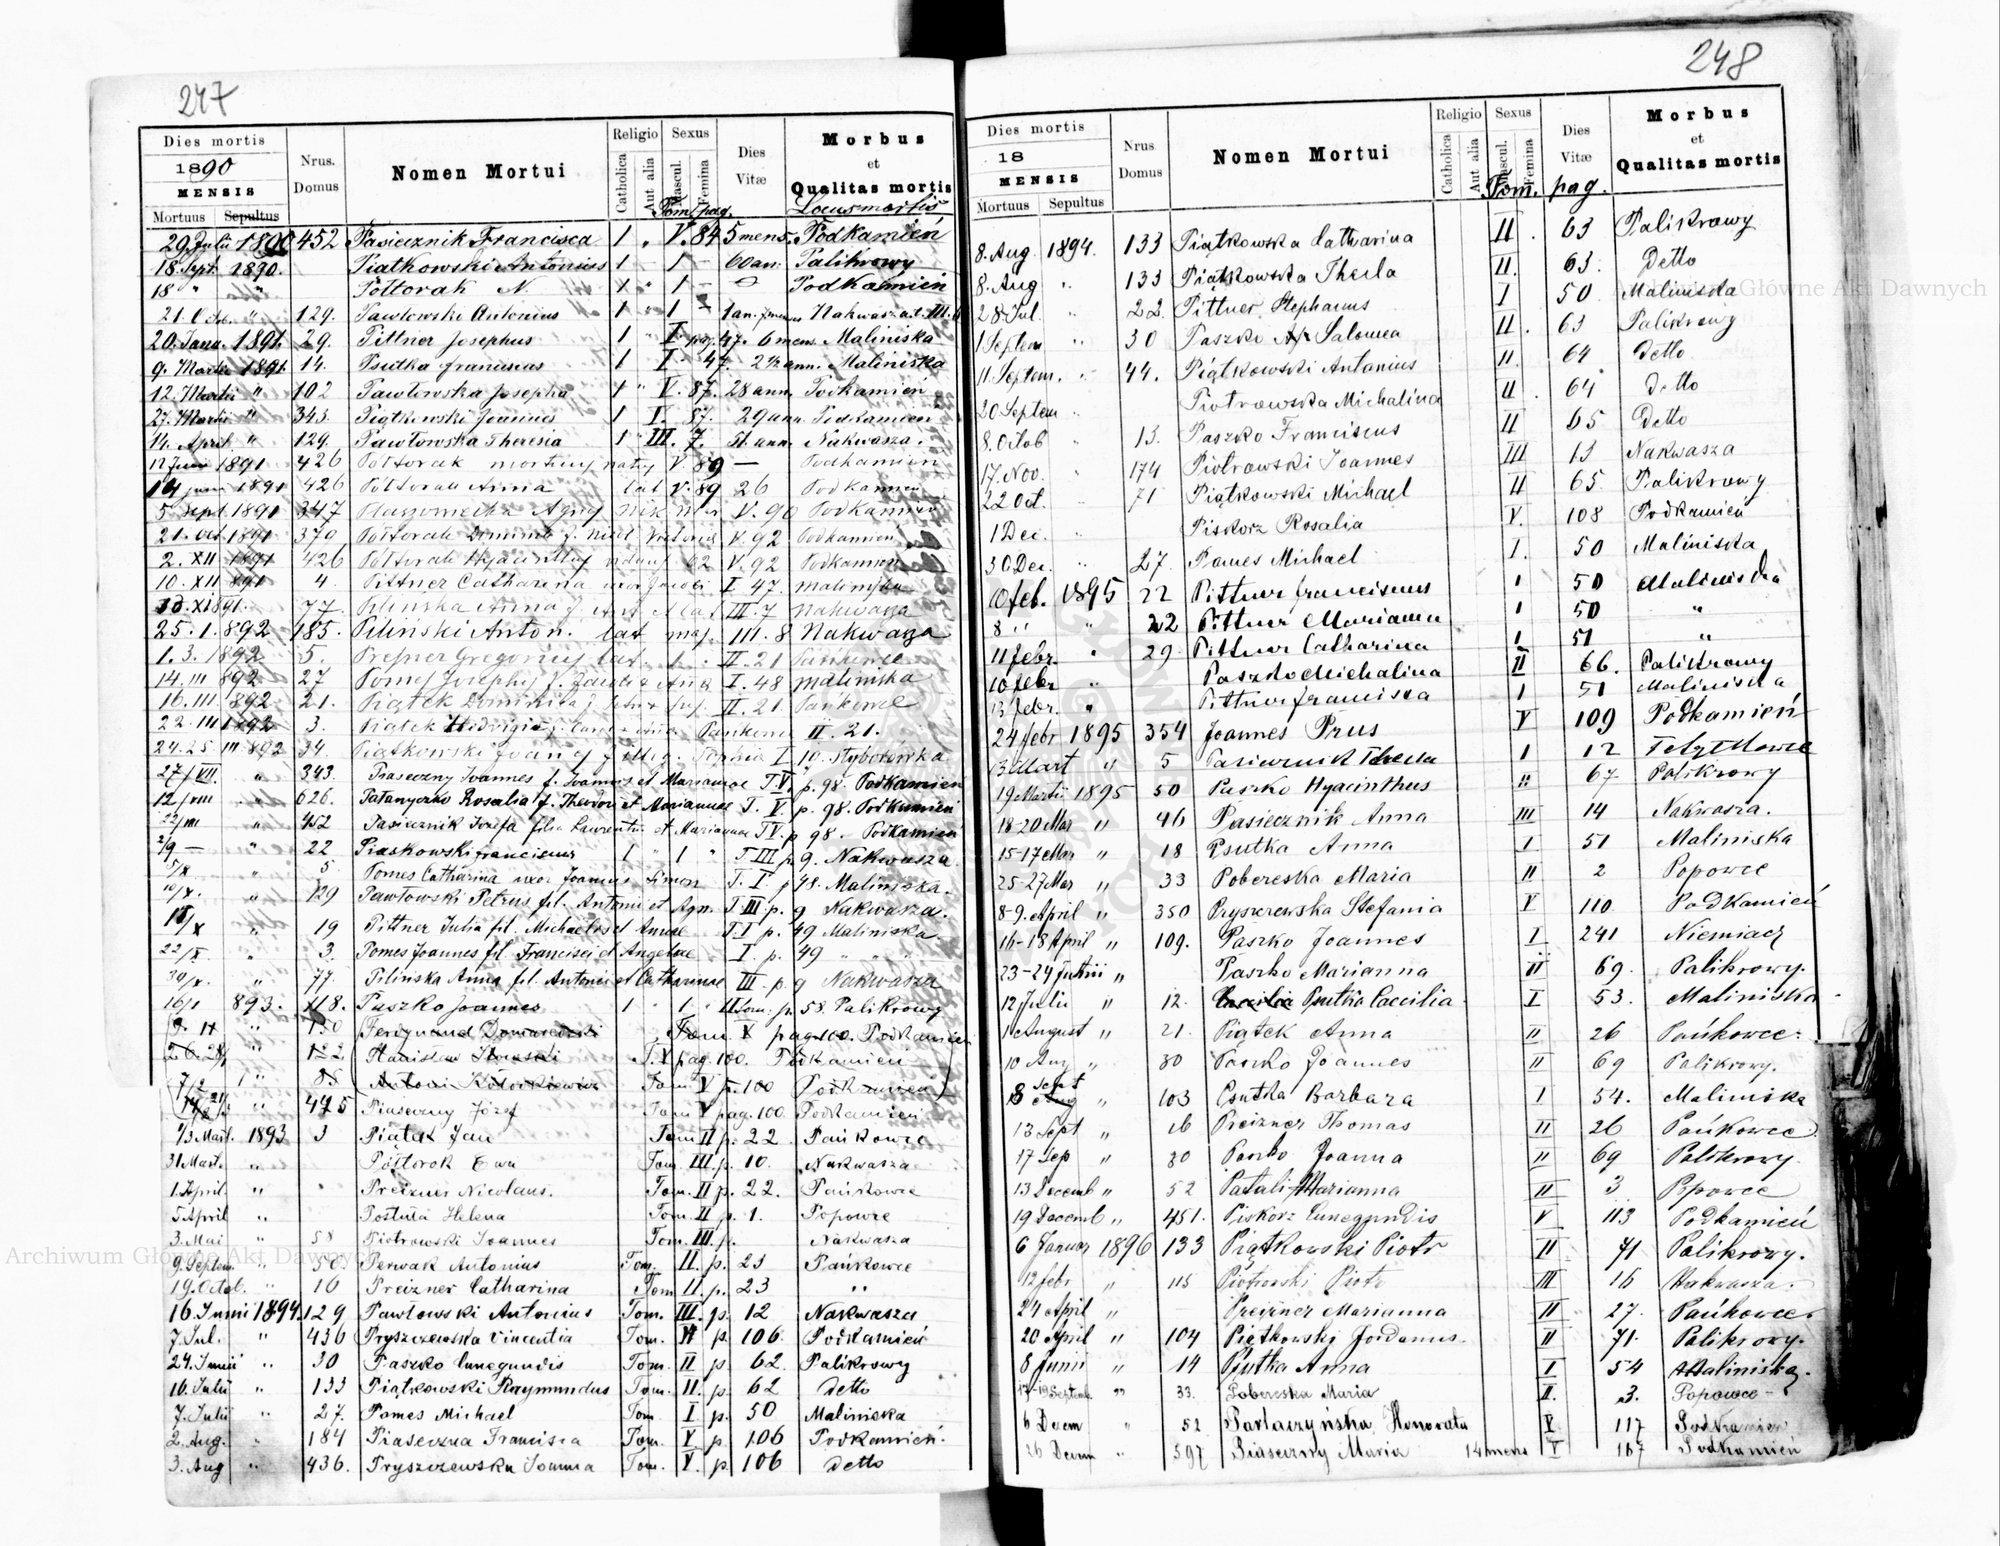 247
Dies mortis
1890
MENSIS
Mortuus Sepultus
Nrus. Domus
Nomen Mortui
Religio
Catholica
Aut alia
Sexus
Mascul.
Femina
Tom. pag.
Dies Vitæ
Morbus
et
Qualitas mortis
Locus mortis
29. Julii 1890 452 Pasiecznik Francisca 1 " V. 84 5 mens. Podkamień
18. Sept. 1890. Piatkowski Antonius 1 - 1 - 60 an. Palikrowy
18 " " Półtorak N. 1 - Podkamień
21. Oct. " 129. Pawlowski Antonius 1 " 1 - Nakwasza
20. Janu. 1891. 29. Pittner Josephus 1 " I. pag. 47. 6 mens. Maliniska
9. Martii 1891 14. Psutka Franciscus 1 I. 47. 2½ ann. Maliniska
12. Martii " 102 Pawlowska Josepha 1 " V. 87. 28 ann. Podkamień
27. Martii " 343. Piątkowski Joannes 1 V. 87. 29 ann. Podkamień
14. April " 129. Pawlowska Theresia 1 " III. 7. ann. Nakwasza.
12 Junii 1891 426 Półtorak V. 89 — Podkamień
14 Junii 1891 426 Półtorak Anna lat V. 89 26 Podkamień
5 Sept. 1891 347 V. 90 Podkamień
21. Oct. 1891 370 Półtorak V. 92 Podkamień
2. XII 1891 426 Półtorak 62 V. 92 Podkamień
10. XII 891 4. Pittner Catharina uxor Jacobi I. 47 Maliniska
77. Pilinska Anna III. 7 Nakwasza
25. 1. 892 185. Piliński Anton. lat III. 8 Nakwasza
1. 3. 1892 5. II. 21 Pańkowce
14. III 892 27 I. 48 Maliniska
16. III 892 21. Piątek Dominika II. 21 Pańkowce
22. III 1892 3. Piątek II. 21.
24. 25. III. 892 34. Piatkowski I. 10.
27/VII. " 343. Piaseczny Joannes f. Joannis et Mariannae T. V. p. 98. Podkamien
12/VIII " 626. Rosalia f. Theodori et Mariannae T. V. p. 98. Podkamień
22/VIII " 452 Pasiecznik Józefa filia Laurentii et Mariannae T V. p 98. Podkamień
2/9 — " 22 Piaskowski Franciscus 1 " 1 " T. III p. 9. Nakwasza.
5/X " 5. Pomes Catharina uxor Joannis Simon T. I. p 48. Maliniska.
10/X. " 129 Pawłowski Petrus fil. Antonii et Agn. T. III. p. 9 Nakwasza.
" 19 Pittner Julia fil. Michaelis et Annae T. I p. 49 Maliniska.
22/X. " 3. Pomes Joannes fil. Francisci et Angelae I. p. 49 "
30/X. " 77. Pilińska Anna fil. Antonii et Catharinae III. p. 9 Nakwasza
16/1 893. 118. Paszko Joannes 1 " 1 " II Tom. p. 58. Palikrowy
Ferdynand Tom V pag. 100. Podkamień
122 Stanisław T. V pag. 100. Podkamień
7/2 " 85 Antoni Tom V p. 100 Podkamień
" 475 Piaseczny Józef Tom V pag. 100. Podkamień
13 Mart. 1893 3 Piątek Jan Tom II p. 22 Pańkowce
31 Mart. " Półtorok Ewa Tom. III. p. 10. Nakwasza
1. April. " Preizner Nicolaus. Tom. II p. 22. Pańkowce
5 April " Postula Helena Tom. II p. 1. Popowce
3. Mai " 58 Piotrowski Joannes Tom. III. p. Nakwasza
9. Septem. " 50. Perwak Antonius Tom. II. p. 23 Pańkowce
19. Octob. " 10 Preizner Catharina Tom II. p. 23 "
16. Junii 1894. 129 Pawłowski Antonius Tom. III. p. 12 Nakwasza
7. Jul. " 436 Pryszczewska Vincentia Tom. V p. 106. Podkamień
24. Junii " 30 Paszko Cunegundis Tom. II p. 62. Palikrowy
16. Julii " 133 Piątkowski Raymundus Tom. II. p. 62 Detto
7. Julii " 27. Pomes Michael Tom. I p. 50 Maliniska
2. Aug. " 184 Piaseczna Francisca Tom. V p. 106 Podkamień.
3. Aug " 436. Pryszczewska Joanna Tom. V. p. 106 Detto
248
Dies mortis
18
MENSIS
Mortuus Sepultus
Nrus Domus
Nomen Mortui
Religio
Catholica
Aut alia
Sexus
Mascul.
Femina
Tom.
Dies Vitæ
pag.
Morbus
et
Qualitas mortis
8. Aug. 1894. 133 Piątkowska Catharina II. 63 Palikrowy
8. Aug " 133 Piątkowska Thecla II. 63. Detto
28 Jul. " 22. Pittner Stephanus I 50 Maliniska
1 Septem " 30 Paszko Salomea II. 63 Palikrowy
11. Septem. " 44. Piątkowski Antonius II. 64 Detto
20 Septem " Piotrowska Michalina II. 64 Detto
8. Octob " 13. Paszko Franciscus II 65 Detto
17. Nov. " 174 Piotrowski Joannes III 13 Nakwasza
22 Oct. " 71 Piątkowski Michael II 65. Palikrowy
1 Dec. " Piskorz Rosalia V. 108 Podkamień
30 Dec. " 27. Pomes Michael I. 50 Maliniska
Feb. 1895 22 Pittner Franciscus 1 50 Maliniska
8 " " 22 Pittner Marianna 1 50 "
11 febr. " 29 Pittner Catharina 1 51 "
10 febr " Paszko Michalina II 66. Palikrowy
13 febr. " Pittner Francisca 1 51 Maliniska
24 febr 1895 354 Joannes Prus V 109 Podkamień
13 Mart " 5 Pasiecznik Thecla 1 12
19 Martii 1895 50 Paszko Hyacinthus II 67 Palikrowy
18-20 Mar " 46 Pasiecznik Anna III 14 Nakwasza.
15-17 Mar " 18 Psutka Anna I 51 Maliniska
25-27 Mar " 33 Pobereska Maria II 2 Popowce
8-9. April " 350 Pryszczewska Stefania V 110 Podkamień
16-18 April " 109. Paszko Joannes I 241 Niemiacz
23-24 Junii " Paszko Marianna II 69. Palikrowy.
12 Julii " 12. Caecilia Psutka Caecilia I 53. Maliniska
1 August " 21. Piątek Anna II 26 Pańkowce.
10 Aug " 30 Paszko Joannes II 69 Palikrowy.
8 Sept Aug " 103 Psutka Barbara I 54. Maliniska
13 Sept " 16 Preizner Thomas II 26 Pańkowce
17 Sep " 30 Paszko Joanna II 69 Palikrowy.
13 Decemb " 52 Marianna II 3 Popowce
19 Decemb " 451. Piskorz Cunegundis V 113 Podkamień
6 Januar 1896 133 Piątkowski Piotr II 71 Palikrowy.
12 febr " 115 Piotrowski Piotr III 16 Nakwasza.
24 April " Preizner Marianna II 27. Pańkowce
20 April " 104 Piątkowski Jordanus. II 71. Palikrowy.
8 Junii " 14 Psutka Anna I 54 Maliniska.
17-19 Septemb. " 33. Pobereska Maria II. 3. Popowce
6 Decem " 52 Honorata V 117 Podkamień
26 Decem " 597 Piaseczny Maria 14 mens V 167 Podkamień
Archiwum Główne Akt Dawnych
Archiwum Główne Akt Dawnych